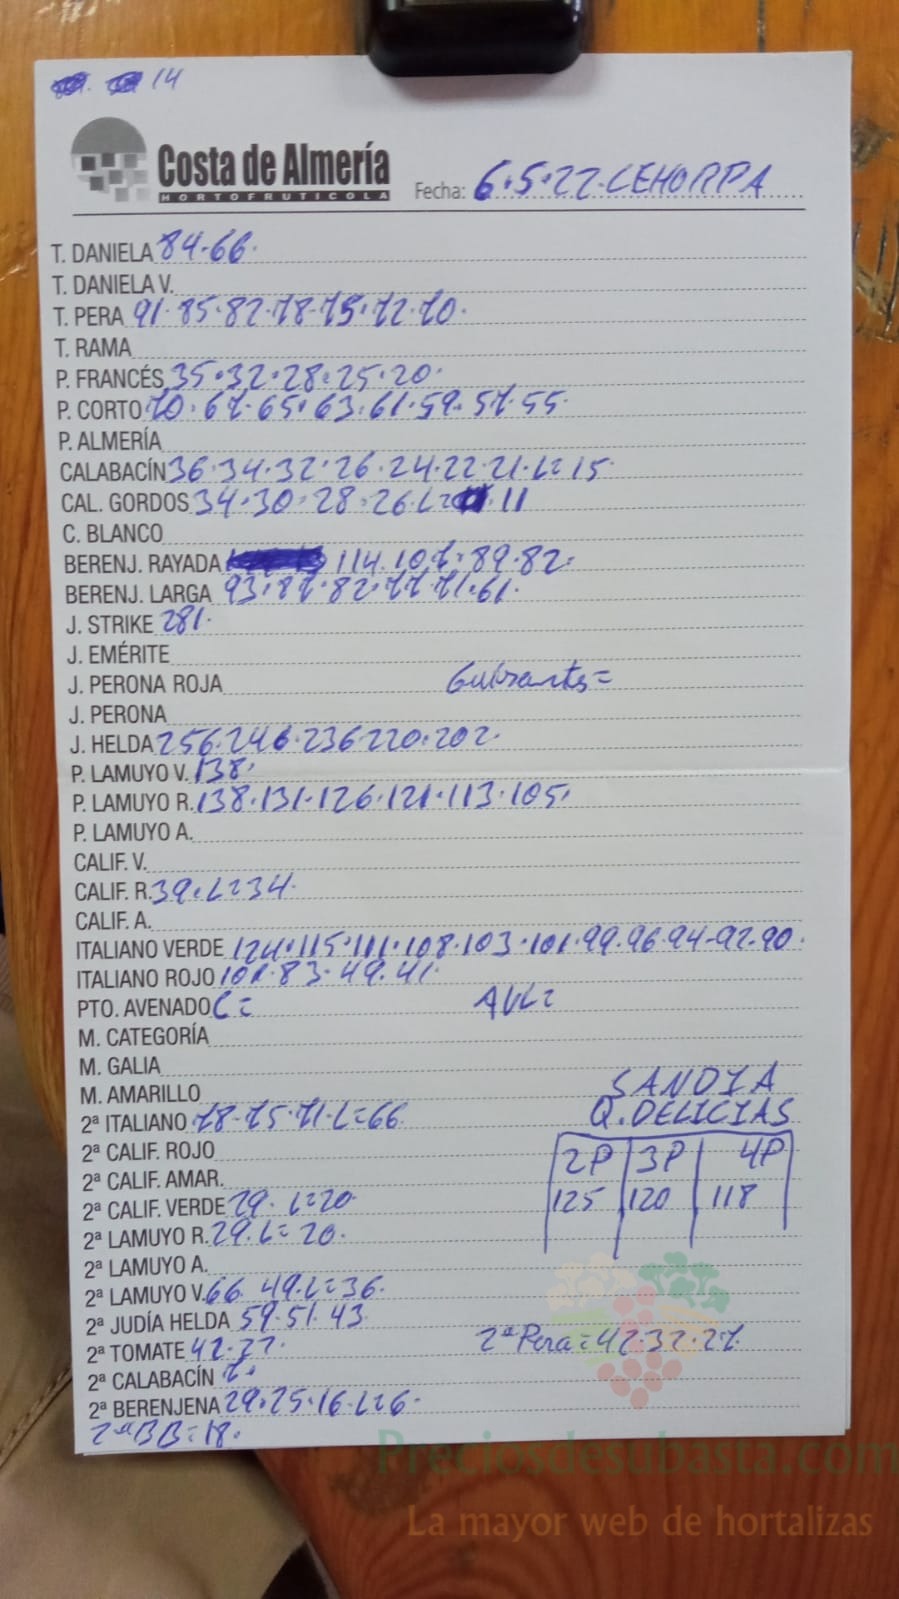 14
Costa de Almería
HORTOFRUTICOLA
Fecha: 6.5.22.CEHORPA
T. DANIELA 84.66.
T. DANIELA V.
T. PERA 91.85.82.78.75.72.70.
T. RAMA
P. FRANCÉS 35.32.28.25.20.
P. CORTO 70.67.65.63.61.59.57.55
P. ALMERÍA
CALABACÍN 36.34.32.26.24.22.21.L=15.
CAL. GORDOS 34.30.28.26.L= 11
C. BLANCO
BERENJ. RAYADA 114.107.89.82.
BERENJ. LARGA 93.87.82.77.71.61.
J. STRIKE 281.
J. EMÉRITE
J. PERONA ROJA Guisantes=
J. PERONA
J. HELDA 256.246.236.220.202.
P. LAMUYO V. 138.
P. LAMUYO R. 138.131.126.121.113.105.
P. LAMUYO A.
CALIF. V.
CALIF. R. 39.L=34.
CALIF. A.
ITALIANO VERDE 124.115.111.108.103.101.99.96.94-92.90.
ITALIANO ROJO 83.49.41.
PTO. AVENADO C= AVL=
M. CATEGORÍA
M. GALIA
M. AMARILLO
SANDIA
2ª ITALIANO 78-75.71.L=66. Q.DELICIAS
2ª CALIF. ROJO 2P 3P 4P
2ª CALIF. AMAR.
2ª CALIF. VERDE 29. L=20 125 120 118
2ª LAMUYO R. 29.L=20.
2ª LAMUYO A.
2ª LAMUYO V. 66.49.L=36.
2ª JUDÍA HELDA 59.51.43.
2ª TOMATE 42.37. 2ªPera=42.32.27.
2ª CALABACÍN 7.
2ª BERENJENA 29.25.16.L=6.
2ªBB=18.
Preciosdesubasta.com
La mayor web de hortalizas